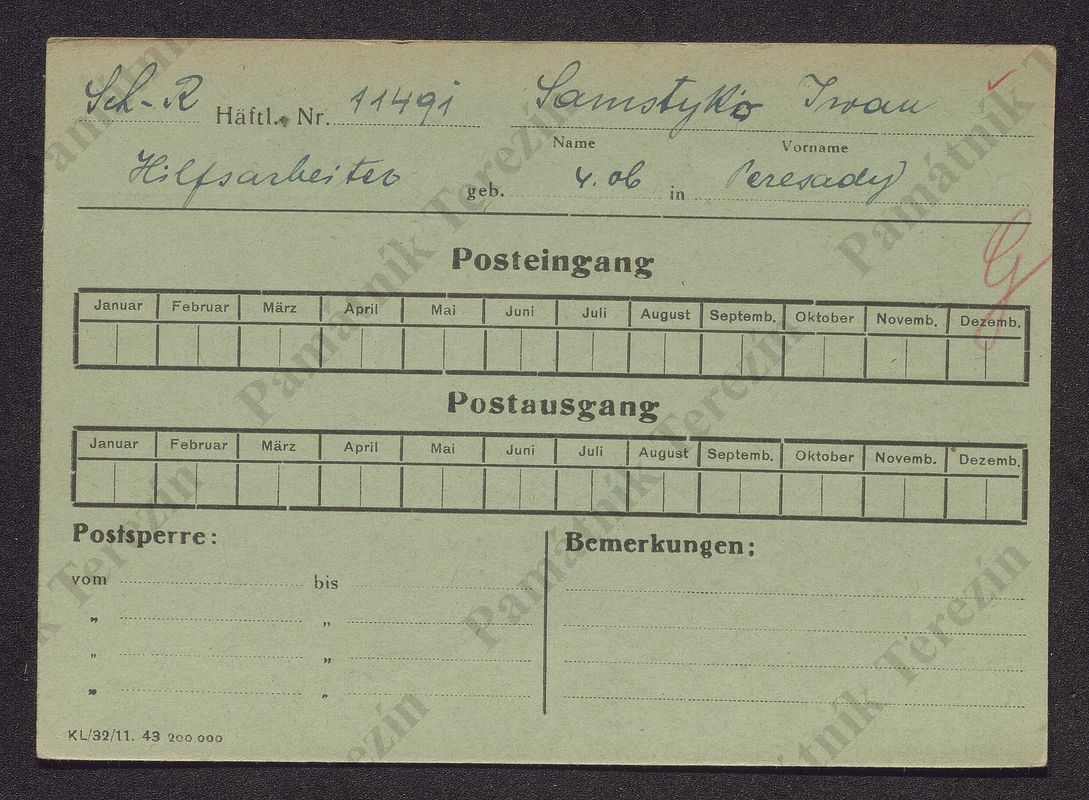 Sch-R Häftl. Nr. 11491 Samstyko Iwan
Name Vorname
Hilfsarbeiter geb. 4.06 in Peresady
Posteingang
Januar Februar März April Mai Juni Juli August Septemb. Oktober Novemb. Dezemb.
Postausgang
Januar Februar März April Mai Juni Juli August Septemb. Oktober Novemb. Dezemb.
Postsperre: Bemerkungen:
vom bis
„ „
„ „
„ „
KL/32/11. 43 200 000
Památník Terezín